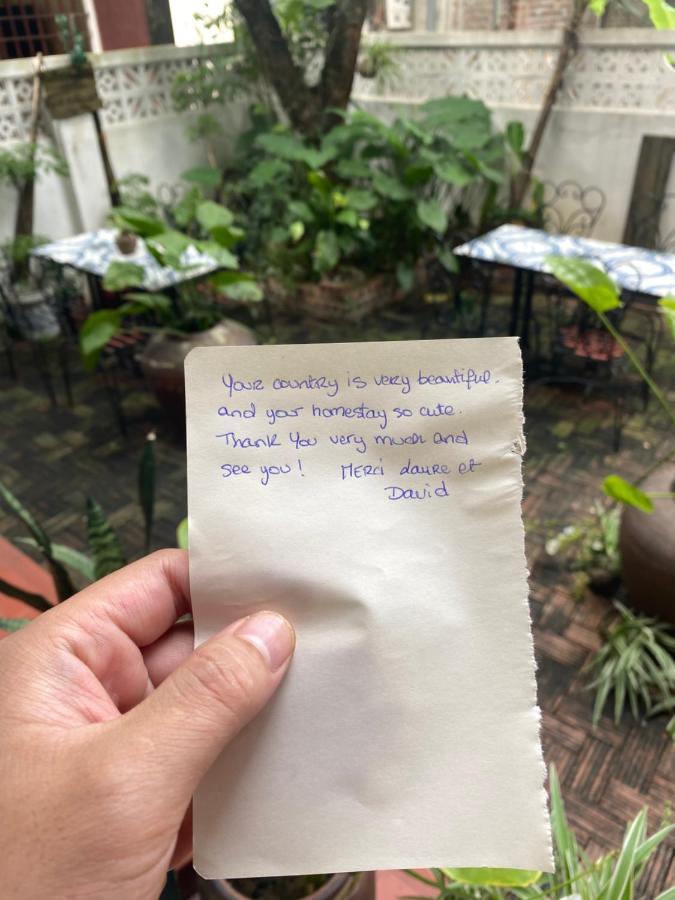 Your country is very beautiful.
and your homestay so cute.
Thank You very much and
see you! MERci daure et
David